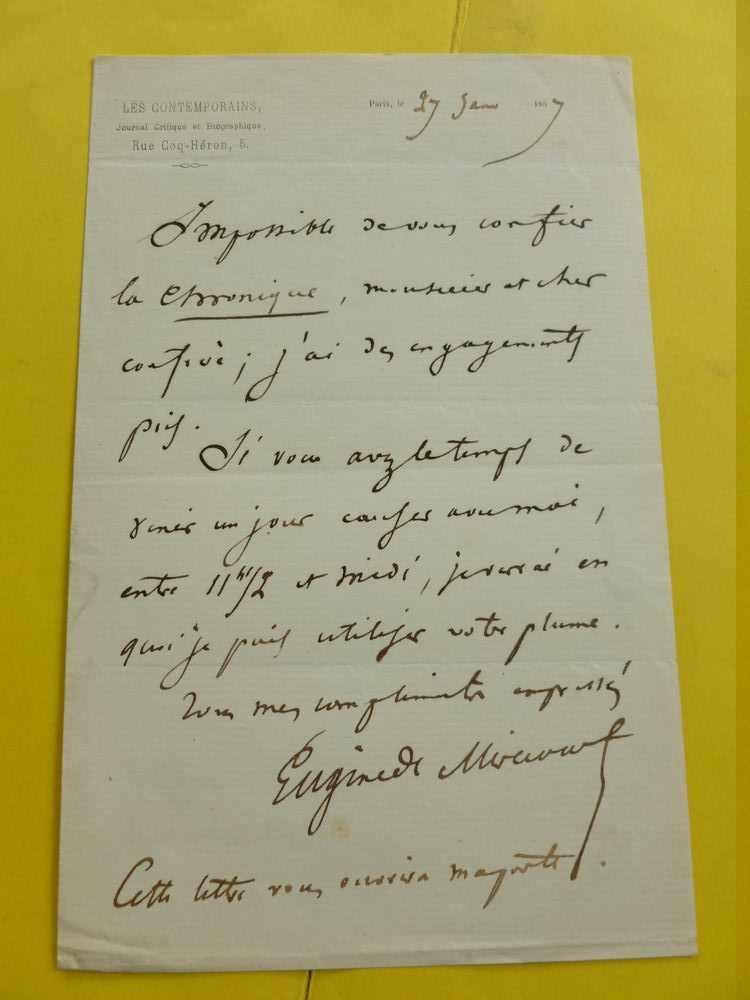 LES CONTEMPORAINS,
Journal Critique et Biographique,
Rue Coq-Héron, 5.
Paris, le 27 Janv 1857
Impossible de vous confier
la Chronique, monsieur et cher
confrère ; j'ai des engagements
pris.
Si vous avez le temps de
venir un jour causer avec moi,
entre 11 h 1/2 et midi, je verrai en
quoi je puis utiliser votre plume.
Tous mes compliments empressés
Eugène de Mirecourt
Cette lettre vous ouvrira ma porte.